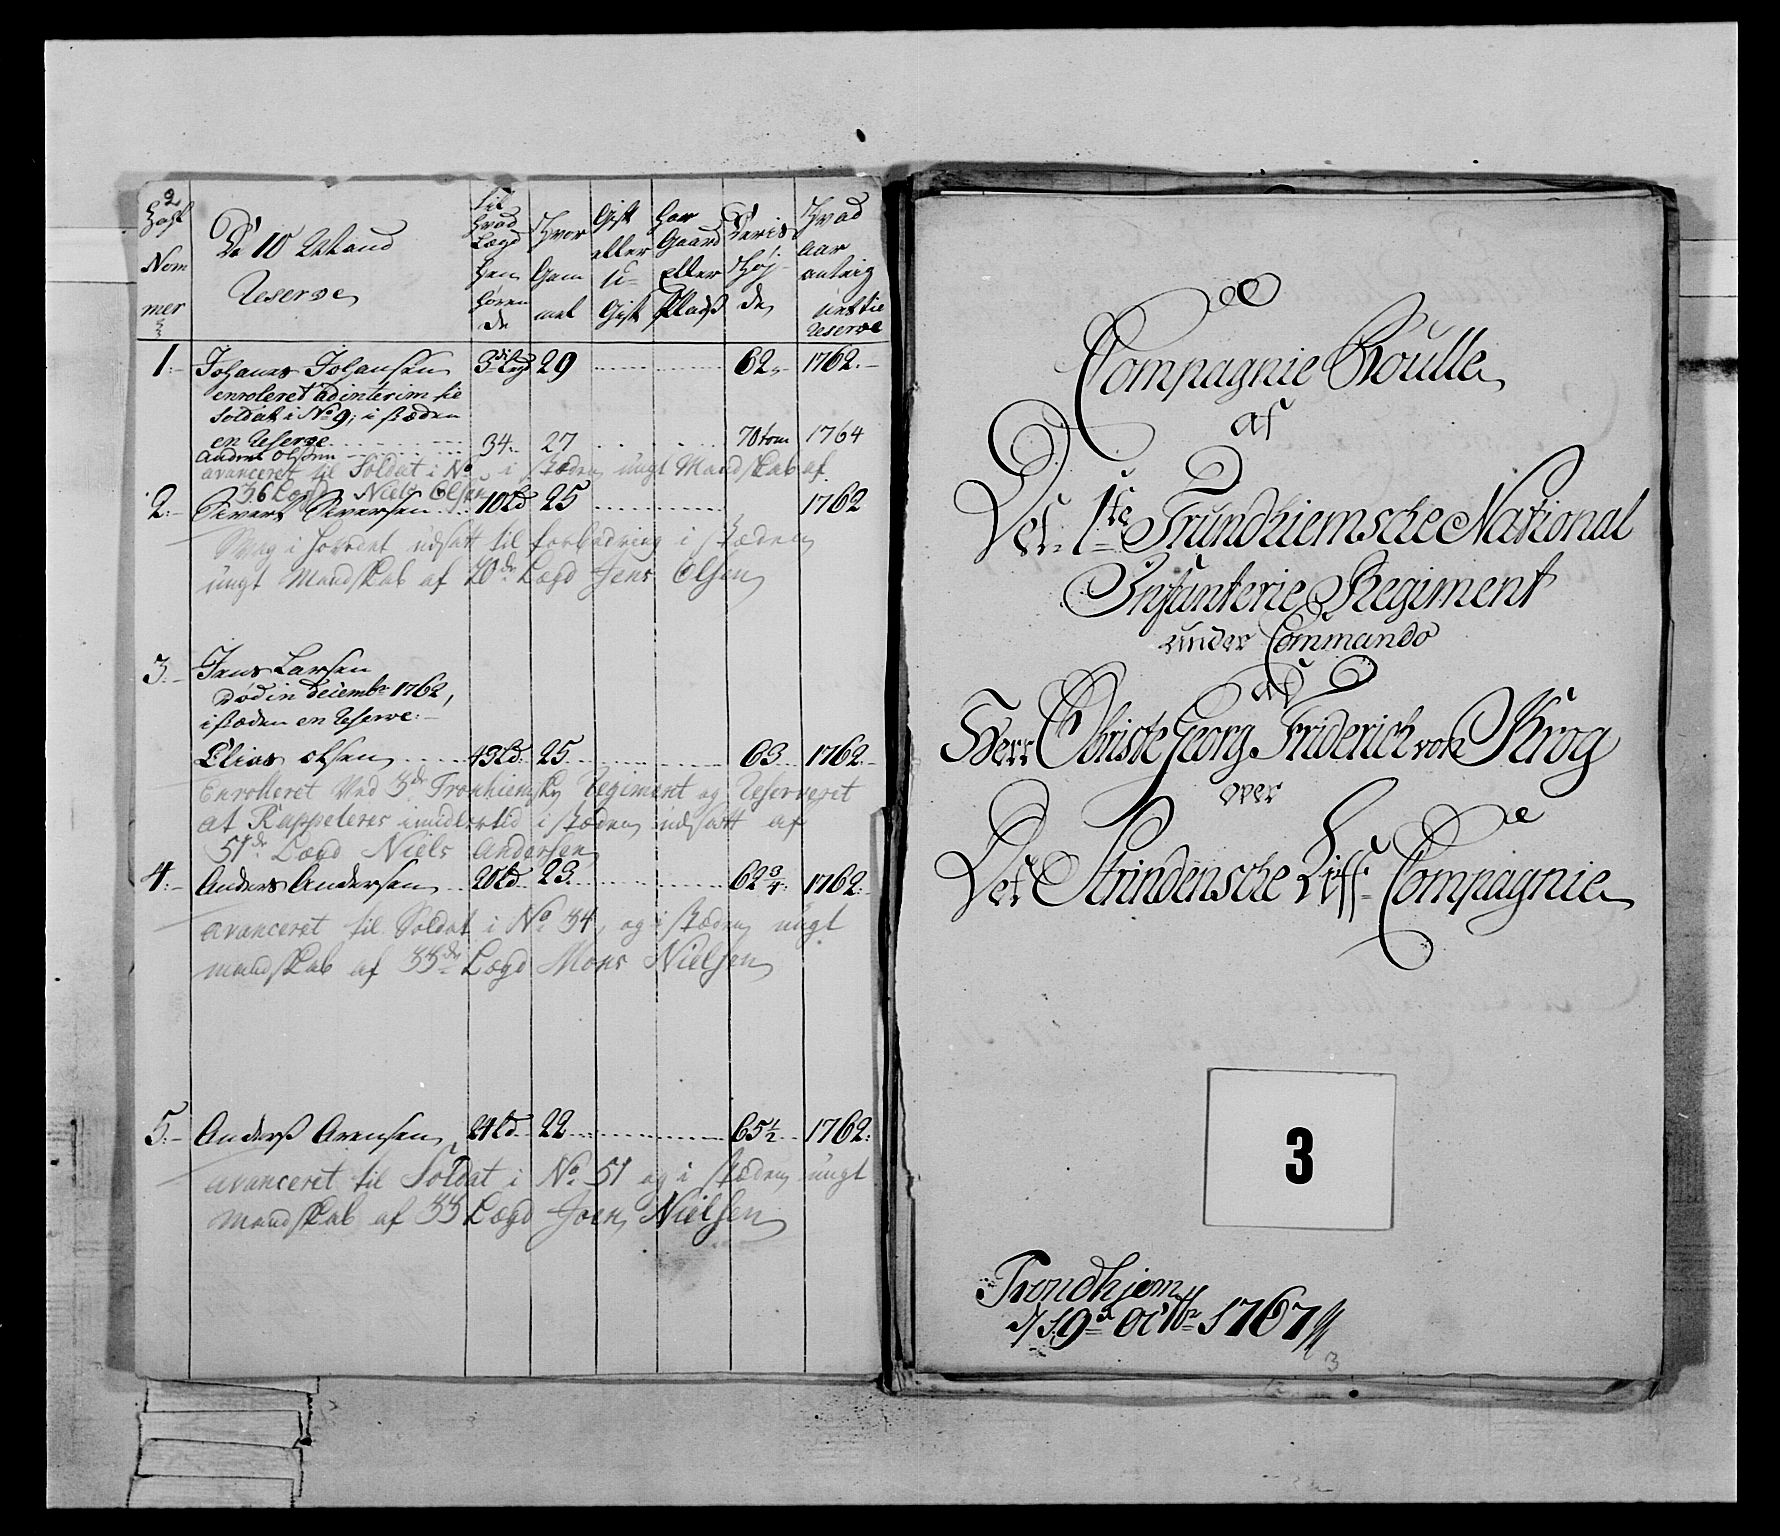 Nom
mer
De 10 Mand
Reserve
Til
Hvad
Lægd
Hen
hören
de
Hvor
Gam
mel
Gift
eller
u-
Gift
Har
Gaard
eller
Plads
Deris
Høj-
de
Hvad
aar
antaig
Reserve
1. Johanes Johansen 3die Lægd 29 62 1762
enroleret ad interim til
Soldat i No 9, i stæden
en Reserve 34 27 70 tom 1764
Anders Olsen
avanceret til Soldat i No i stæden ungt Mandskab af
36 Lægd Niels Olsen
2. Sivert Siversen 10 Ld 25 1762
Svag i hovedet udsatt til forbedring i stæden
ungt Mandskab af 20de Lægd Jens Olsen
3. Jens Larsen
Död in decembr 1762,
i stæden en Reserve
Elias Olsen 43 Ld 25 63 1762
Enrolleret Ved 3de Tronhiemske Regiment og Reserveret
at Rappeleres imidlertid i stæden udsatt af
51de Lægd Niels Andersen
4. Anders Andersen 20 Ld 23 62 3/4 1762
avanceret til Soldat i No 34, og i stæden ungt
mandskab af 33de Lægd Mons Nielsen
5. Anderss Arensen 24 Ld 22 65 1/2 1762
avanceret til Soldat i No 51 og i stæden ungt
Mandskab af 33 Lægd Joen Nielsen
Compagnie Roulle
af
Det 1ste Trundhiemsche National
Infanterie Regiment
under Commando
af
Herr Obriste Georg Friderich von Krog
over
Det Strindensche Liff Compagnie
3
Trondhjem
d 19de Octbr 1767
3